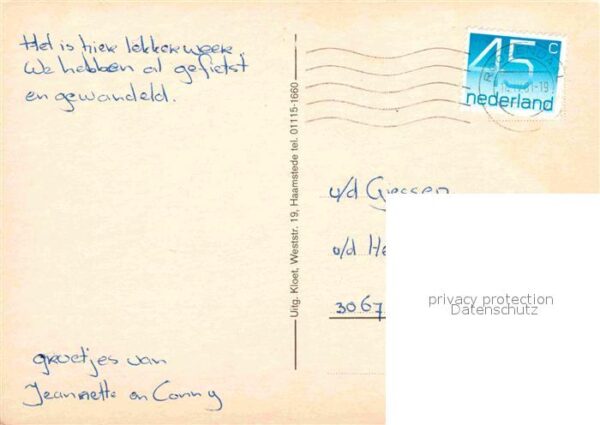 Het is hier lekker weer.
We hebben al gefietst
en gewandeld.
groetjes van
Jeannette en Conny
Uitg. Kloet, Weststr. 19, Haamstede tel. 01115-1660
45 c
nederland
v/d Giessen
v/d He
3067
privacy protection
Datenschutz